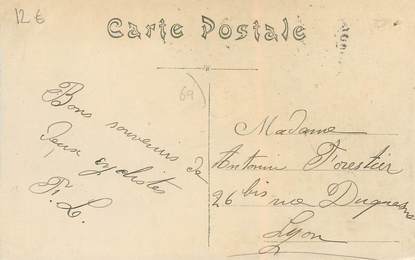 12 €
Carte Postale
69
Bons souvenirs de
deux cyclistes
F. L.
Madame
Antonin Forestier
26 bis rue Duquesne
Lyon